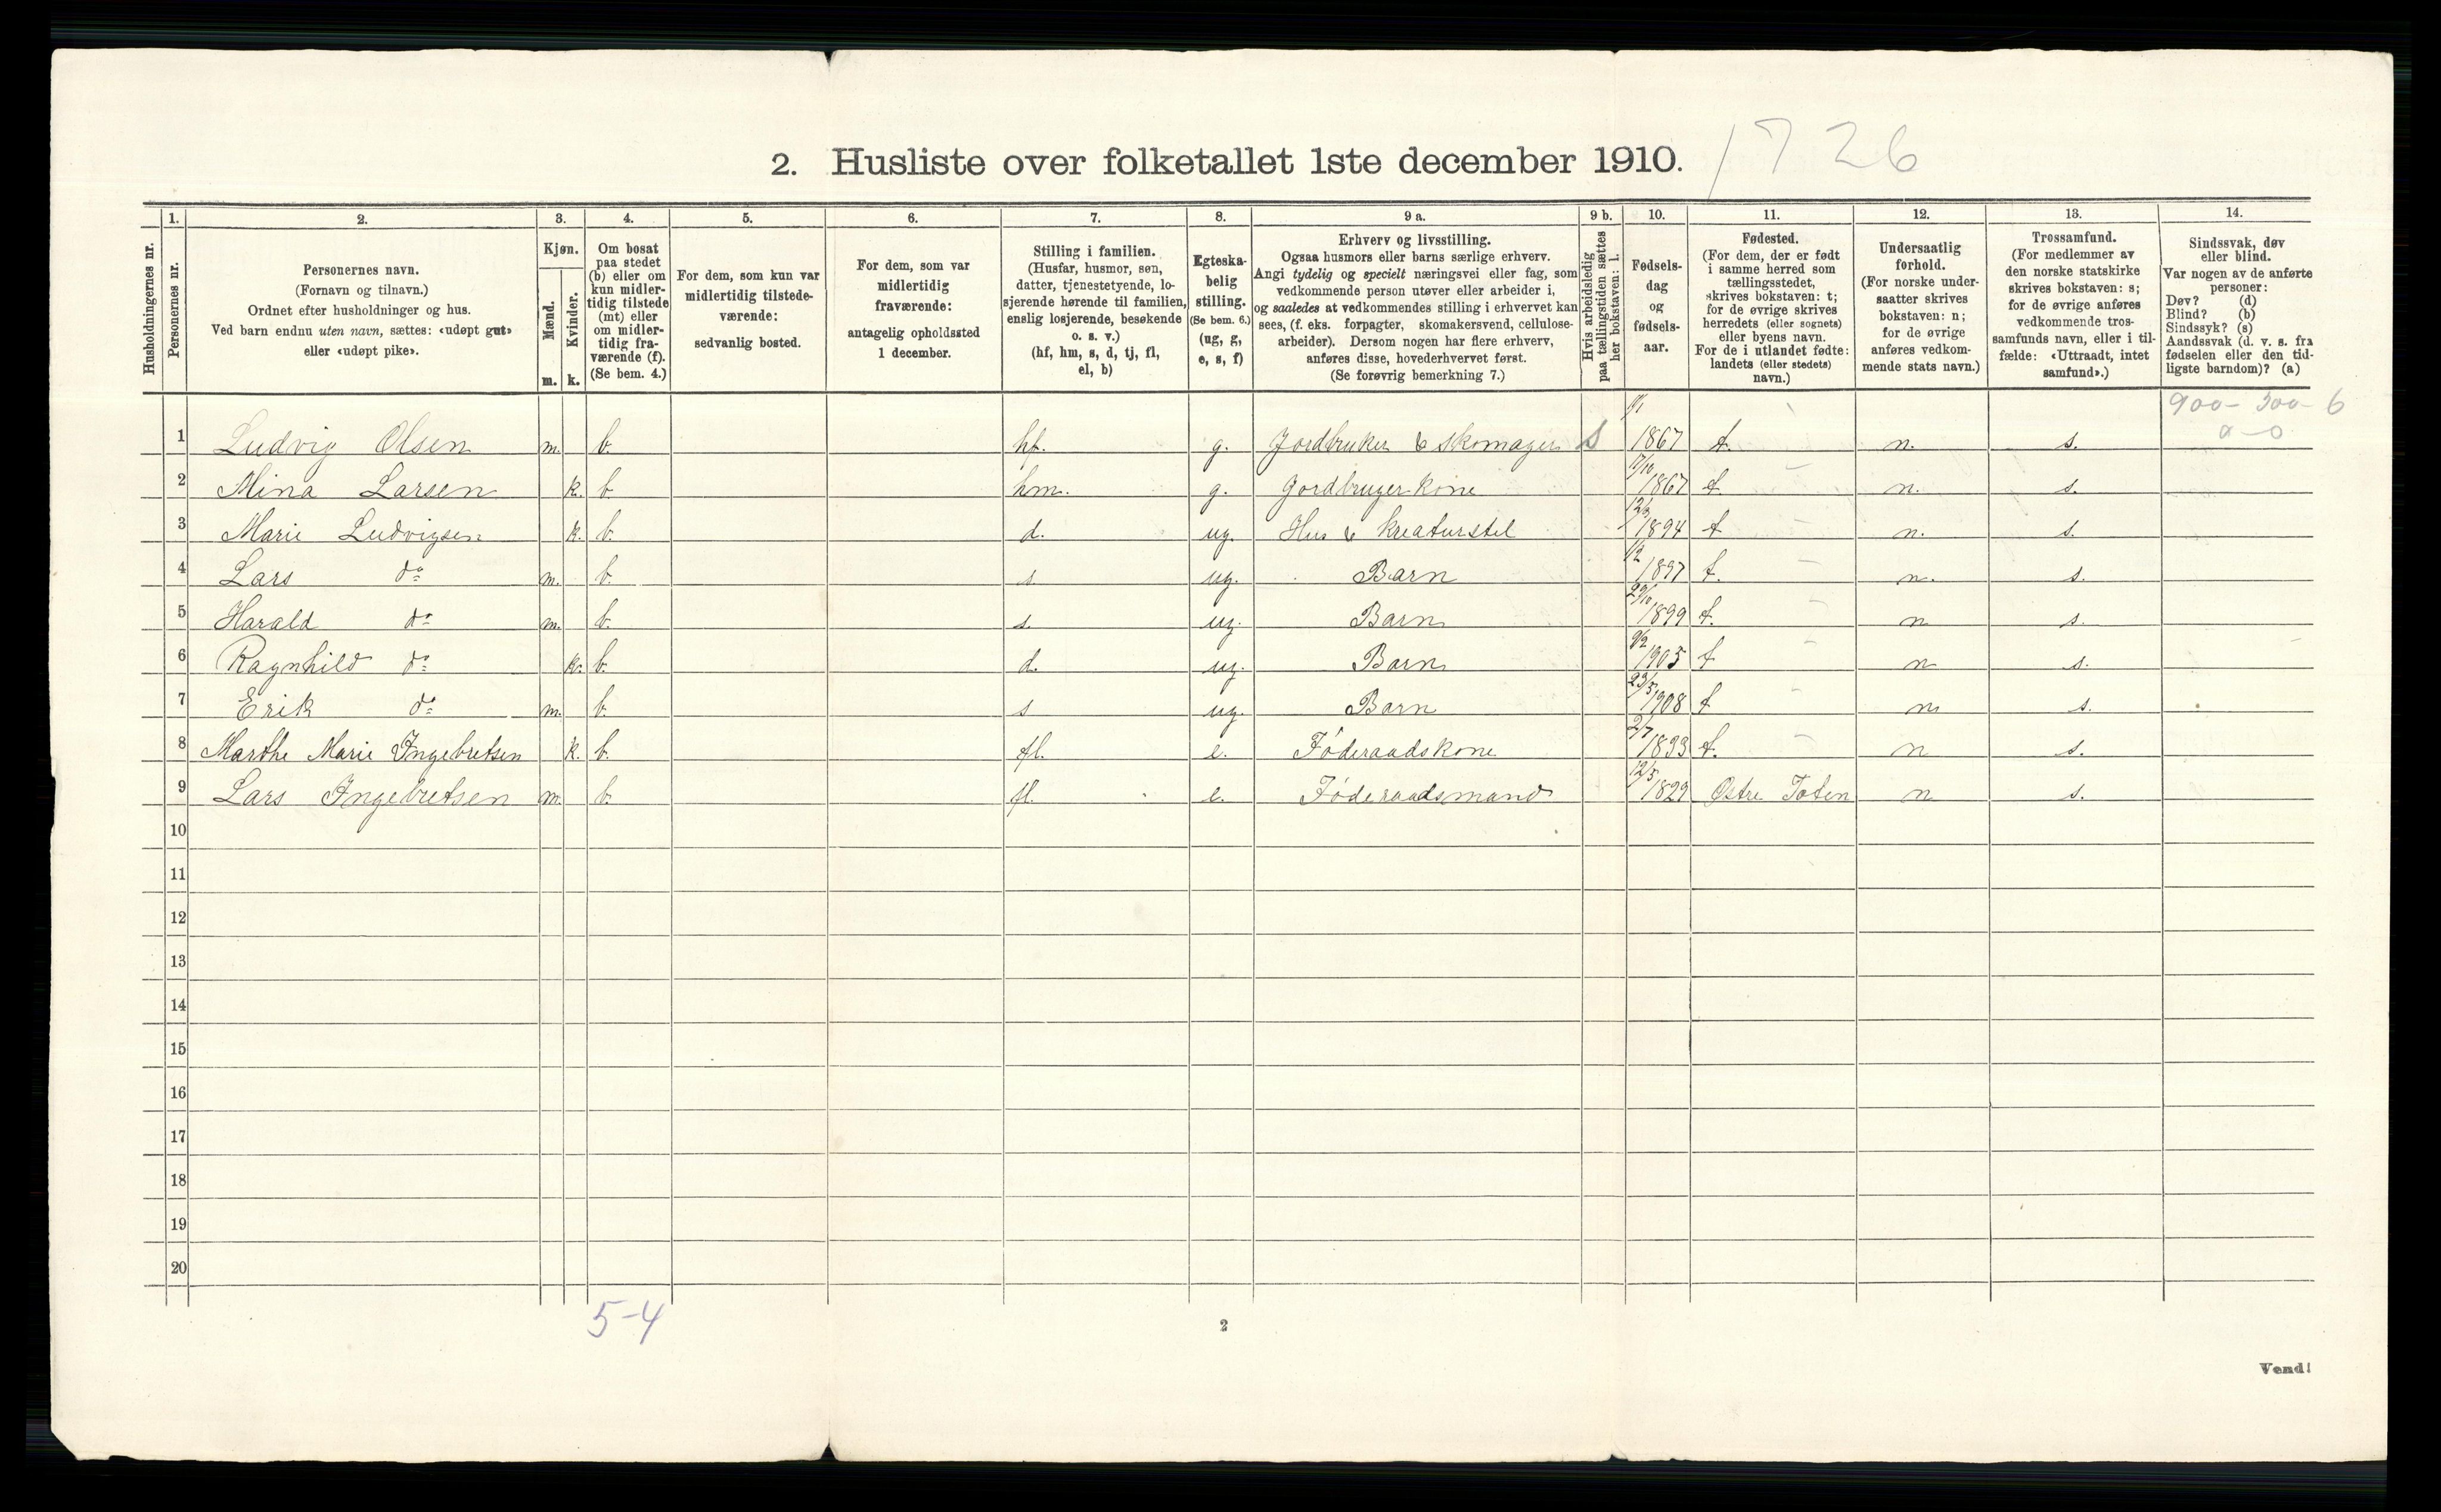 2. Husliste over folketallet 1ste december 1910. 1726
1. 2. 3. 4. 5. 6. 7. 8. 9 a. 9 b. 10. 11. 12. 13. 14.
Husholdningernes nr.
Personernes nr.
Personernes navn.
(Fornavn og tilnavn.)
Ordnet efter husholdninger og hus.
Ved barn endnu uten navn, sættes: «udøpt gut»
eller «udøpt pike».
Kjøn.
Mænd.
Kvinder.
m. k.
Om bosat
paa stedet
(b) eller om
kun midler-
tidig tilstede
(mt) eller
om midler-
tidig fra-
værende (f).
(Se bem. 4.)
For dem, som kun var
midlertidig tilstede-
værende:
sedvanlig bosted.
For dem, som var
midlertidig
fraværende:
antagelig opholdssted
1 december.
Stilling i familien.
(Husfar, husmor, søn,
datter, tjenestetyende, lo-
sjerende hørende til familien,
enslig losjerende, besøkende
o. s. v.)
(hf, hm, s, d, tj, fl,
el, b)
Egteska-
belig
stilling.
(Se bem. 6.)
(ug, g,
e, s, f)
Erhverv og livsstilling.
Ogsaa husmors eller barns særlige erhverv.
Angi tydelig og specielt næringsvei eller fag, som
vedkommende person utøver eller arbeider i,
og saaledes at vedkommendes stilling i erhvervet kan
sees, (f. eks. forpagter, skomakersvend, cellulose-
arbeider). Dersom nogen har flere erhverv,
anføres disse, hovederhvervet først.
(Se forøvrig bemerkning 7.)
Hvis arbeidsledig
paa tællingstiden sættes
her bokstaven: l.
Fødsels-
dag
og
fødsels-
aar.
Fødested.
(For dem, der er født
i samme herred som
tællingsstedet,
skrives bokstaven: t;
for de øvrige skrives
herredets (eller sognets)
eller byens navn.
For de i utlandet fødte:
landets (eller stedets)
navn.)
Undersaatlig
forhold.
(For norske under-
saatter skrives
bokstaven: n;
for de øvrige
anføres vedkom-
mende stats navn.)
Trossamfund.
(For medlemmer av
den norske statskirke
skrives bokstaven: s;
for de øvrige anføres
vedkommende tros-
samfunds navn, eller i til-
fælde: «Uttraadt, intet
samfund».)
Sindssvak, døv
eller blind.
Var nogen av de anførte
personer:
Døv? (d)
Blind? (b)
Sindssyk? (s)
Aandssvak (d. v. s. fra
fødselen eller den tid-
ligste barndom)? (a)
900 - 300 - 6
0 - 0
1 Ludvig Olsen m. b. hf. g. Jordbruker & skomager S 1867 t. n. s.
2 Mina Larsen k. b. hm. g. Jordbrugerkone 17/10 1867 t n. s.
3 Marie Ludvigsen k. b. d. ug. Hus & kreaturstel 12/3 1894 t n. s.
4 Lars do m. b. s ug. Barn 1/2 1897 t. n. s.
5 Harald do m. b. s. ug. Barn 29/10 1899 t. n s.
6 Ragnhild do k. b. d. ug. Barn 9/2 1905 t n s.
7 Erik do m. b. s ug. Barn 23/5 1908 t n s.
8 Marthe Marie Ingebretsen k. b. fl. e. Føderaadskone 2/7 1833 t. n s.
9 Lars Ingebretsen m. b. fl. e. Føderaadsmand 12/5 1829 Østre Toten n s.
10
11
12
13
14
15
16
17
18
19
20
5-4
2
Vend!